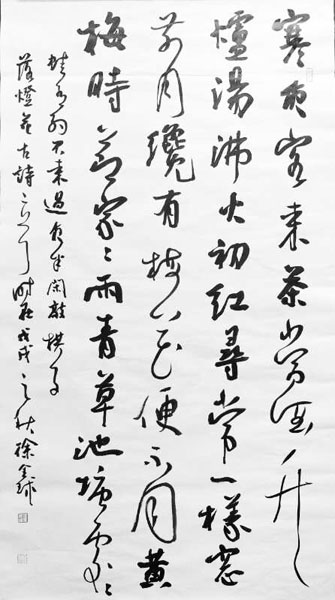 寒夜客来茶当酒竹
爐湯沸火初红尋常一樣窓
前月纔有梅花便不同黄
梅時節家々雨青草池塘处々
蛙有约不来過夜半闲敲棋子
落燈花古詩二首时在戊戌之秋徐金